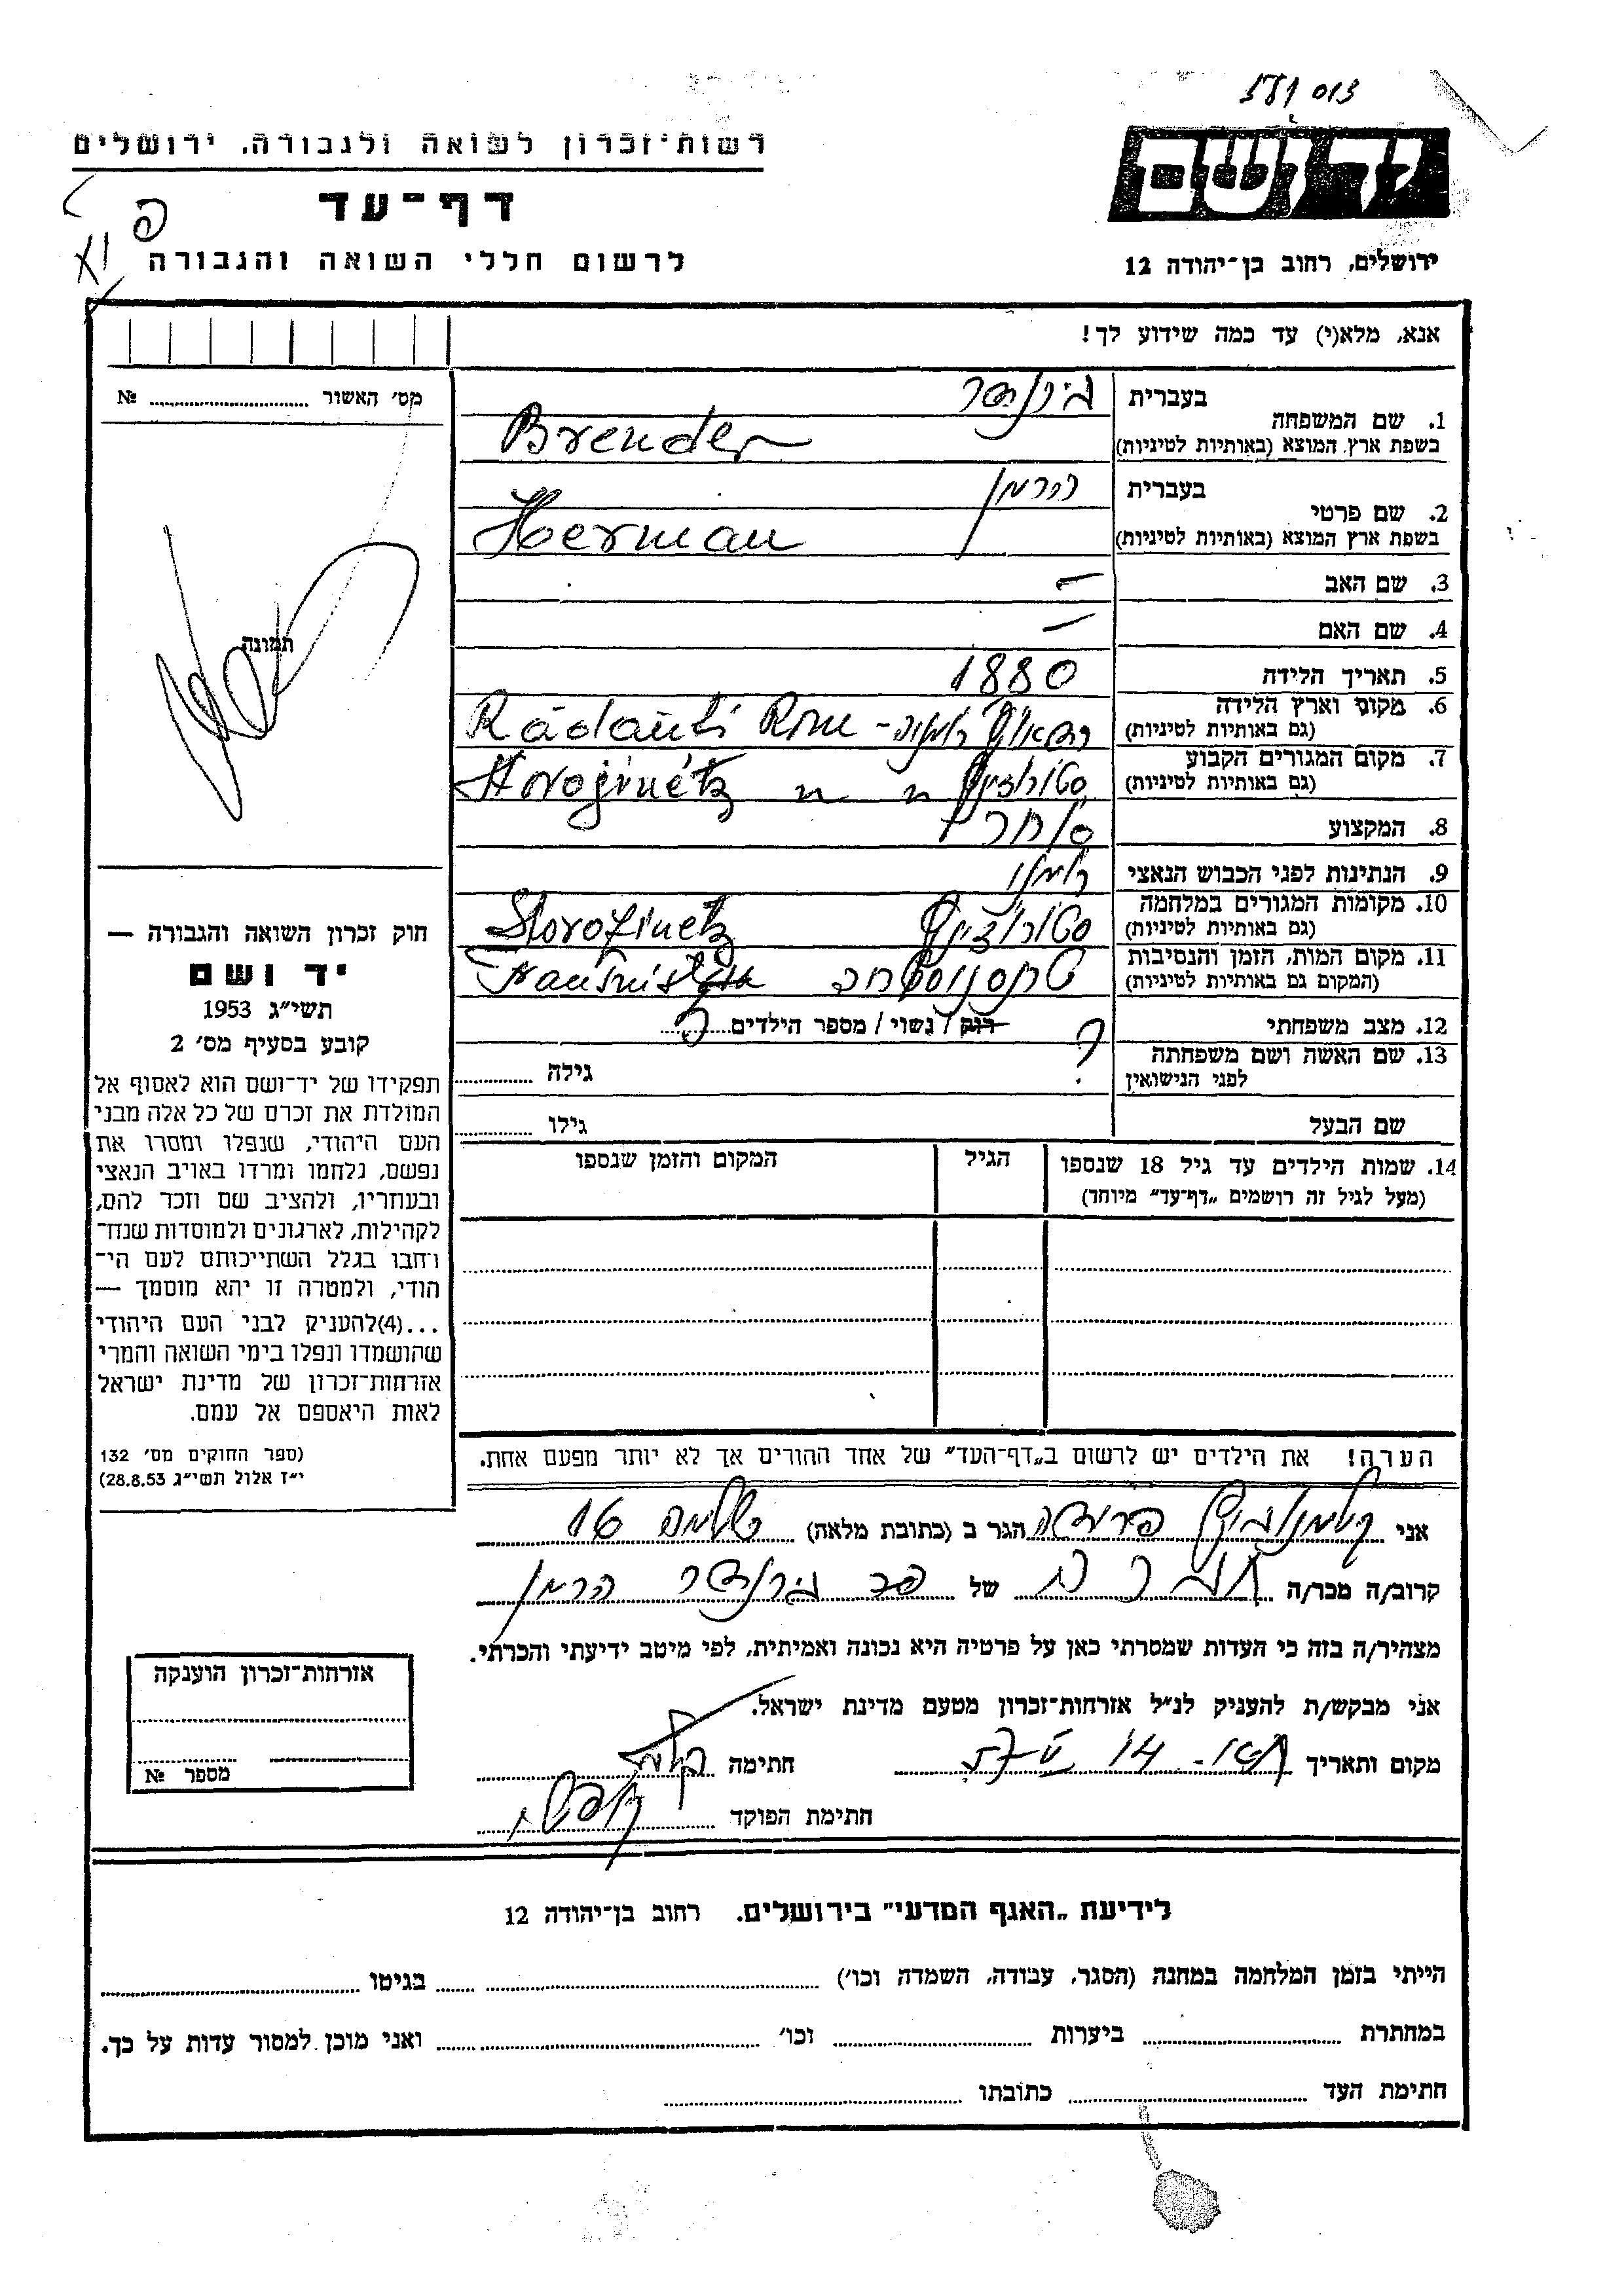 רשות־זכרון לשואה ולגבורה, ירושלים
דף־עד
לרשום חללי השואה והגבורה
יד ושם
ירושלים, רחוב בן־יהודה 12
אנא, מלא(י) עד כמה שידוע לך!
מס׳ האשור № 
תמונה
1. שם המשפחה
בעברית ברנדר
בשפת ארץ המוצא (באותיות לטיניות) Brender
2. שם פרטי
בעברית הרמן
בשפת ארץ המוצא (באותיות לטיניות) Herman
3. שם האב –
4. שם האם –
5. תאריך הלידה 1880
6. מקום וארץ הלידה
(גם באותיות לטיניות) רדאוץ רומניה - Rădăuti Rom
7. מקום המגורים הקבוע
(גם באותיות לטיניות) סטורוז'ינץ " " Storojinétz
8. המקצוע סוחר
9. הנתינות לפני הכבוש הנאצי רומני
10. מקומות המגורים במלחמה
(גם באותיות לטיניות) סטורוז'ינץ Storozinetz
11. מקום המות, הזמן והנסיבות
(המקום גם באותיות לטיניות) טרנסניסטריה
12. מצב משפחתי רוק / נשוי / מספר הילדים ?
13. שם האשה ושם משפחתה
לפני הנישואין ? גילה
שם הבעל גילו
14. שמות הילדים עד גיל 18 שנספו
(מעל לגיל זה רושמים „דף־עד״ מיוחד)
הגיל
המקום והזמן שנספו
חוק זכרון השואה והגבורה —
יד ושם
תשי״ג 1953
קובע בסעיף מס׳ 2
תפקידו של יד־ושם הוא לאסוף אל
המולדת את זכרם של כל אלה מבני
העם היהודי, שנפלו ומסרו את
נפשם, נלחמו ומרדו באויב הנאצי
ובעוזריו, ולהציב שם וזכר להם,
לקהילות, לארגונים ולמוסדות שנח־
רחבו בגלל השתייכותם לעם הי־
הודי, ולמטרה זו יהא מוסמך —
...(4)להעניק לבני העם היהודי
שהושמדו ונפלו בימי השואה והמרי
אזרחות־זכרון של מדינת ישראל
לאות היאספם אל עמם.
(ספר החוקים מס׳ 132
י״ז אלול תשי״ג 28.8.53)
הערה! את הילדים יש לרשום ב„דף־העד״ של אחד ההורים אך לא יותר מפעם אחת.
אני קלמנוביץ פרידה הגר ב (כתובת מלאה) שלמה 16
קרוב/ה מכר/ה של ברנדר הרמן
מצהיר/ה בזה כי העדות שמסרתי כאן על פרטיה היא נכונה ואמיתית, לפי מיטב ידיעתי והכרתי.
אני מבקש/ת להעניק לנ״ל אזרחות־זכרון מטעם מדינת ישראל.
מקום ותאריך חתימה
חתימת הפוקד
אזרחות־זכרון הוענקה
מספר №
לידיעת „האגף המדעי״ בירושלים. רחוב בן־יהודה 12
הייתי בזמן המלחמה במחנה (הסגר, עבודה, השמדה וכו׳) בגיטו
במחתרת ביערות וכו׳ ואני מוכן למסור עדות על כך.
חתימת העד כתובתו